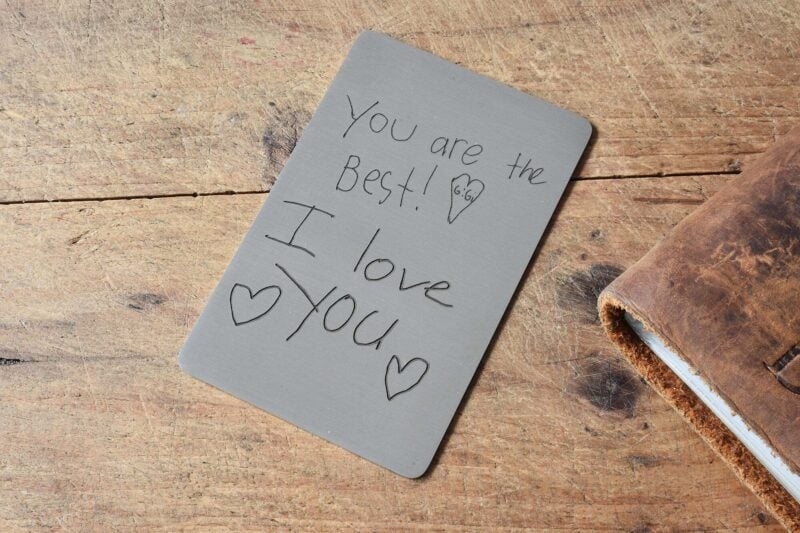 You are the
Best!
GiGi
I love
You